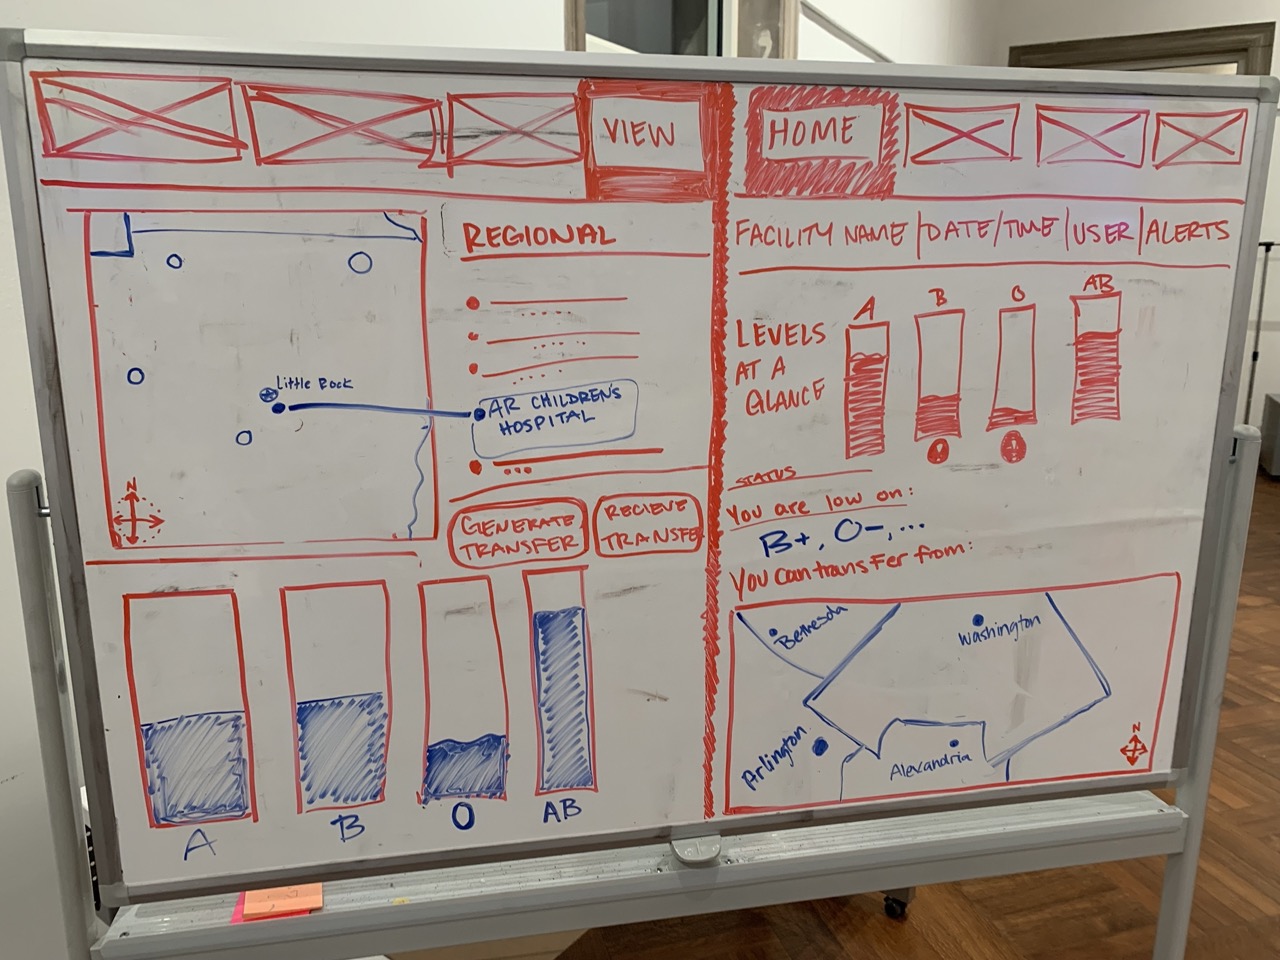 VIEW
REGIONAL
Little Rock
AR CHILDREN'S
HOSPITAL
N
GENERATE
TRANSFER
RECIEVE
TRANSFER
A
B
O
AB
HOME
FACILITY NAME | DATE/TIME | USER | ALERTS
LEVELS
AT A
GLANCE
A
B
O
AB
!
!
STATUS
You are low on:
B+, O-, ...
You can transfer from:
Bethesda
Washington
Arlington
Alexandria
N